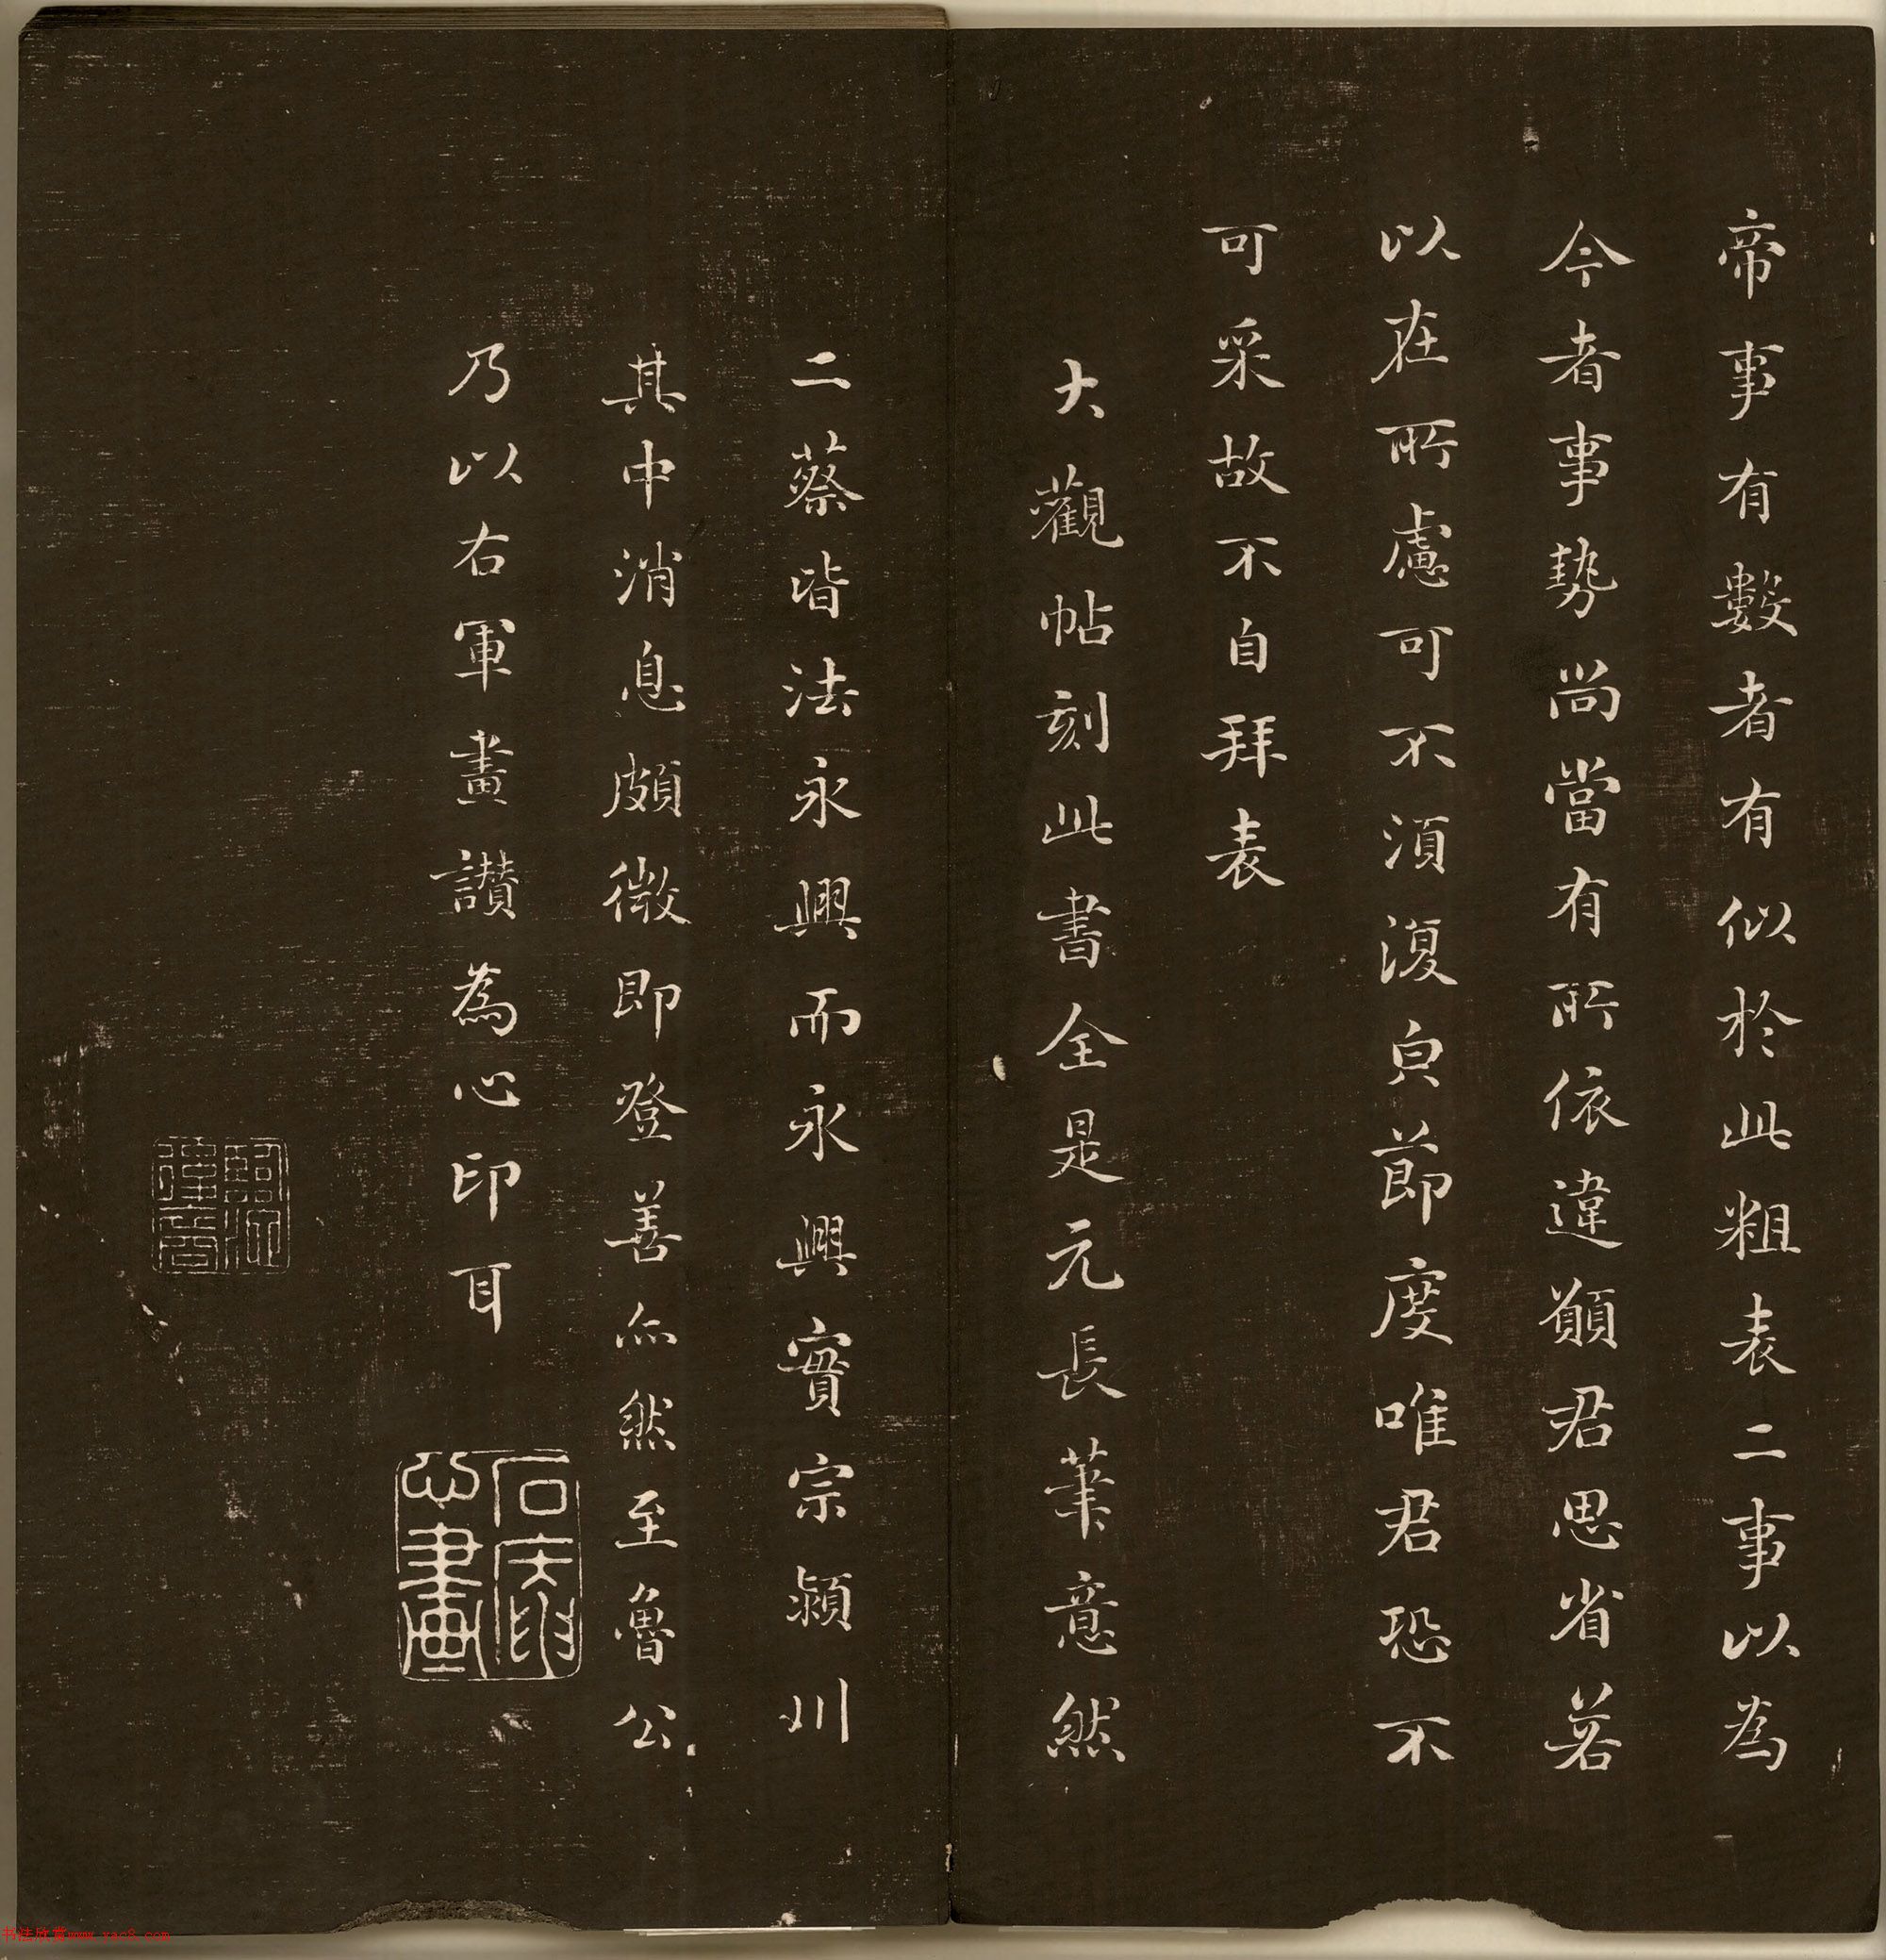 帝事有數者有似於此粗表二事以為
今者事勢尚當有所依違願君思省若
以在所慮可不須復貞節度唯君恐不
可采故不自拜表
大觀帖刻此書全是元長筆意然
二蔡皆法永興而永興實宗潁川
其中消息頗微即登善亦然至魯公
乃以右軍畫讚為心印耳
书法欣赏www.yac8.com